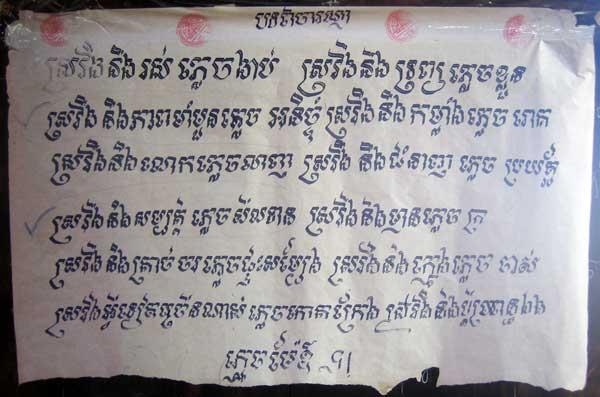 បទពិចារណា
ស្រវឹងនឹងរស់ ភ្លេចងាប់ ស្រវឹងនឹងទ្រព្យ ភ្លេចខ្លួន
ស្រវឹងនឹងភាពមាំមួនភ្លេច អនិច្ចំ ស្រវឹងនឹងកម្លាំងភ្លេច រោគ
ស្រវឹងនឹងលោកភ្លេច ស្រវឹងនឹងជំនាញ ភ្លេច ប្រយ័ត្ន
ស្រវឹងនឹងសម្បត្តិ ភ្លេចសីលទាន ស្រវឹងនឹងមានភ្លេច ក្រ
ស្រវឹងនឹងត្រាច់ចរ ភ្លេចផ្ទះសម្បែង ស្រវឹងនឹងក្មេងភ្លេច ចាស់
ស្រវឹងអ្វីទៀតច្រើនណាស់ ភ្លេចកោតក្រែង ស្រវឹងនឹងប្ដីប្រពន្ធឯង
ភ្លេចម៉ែឪ ។